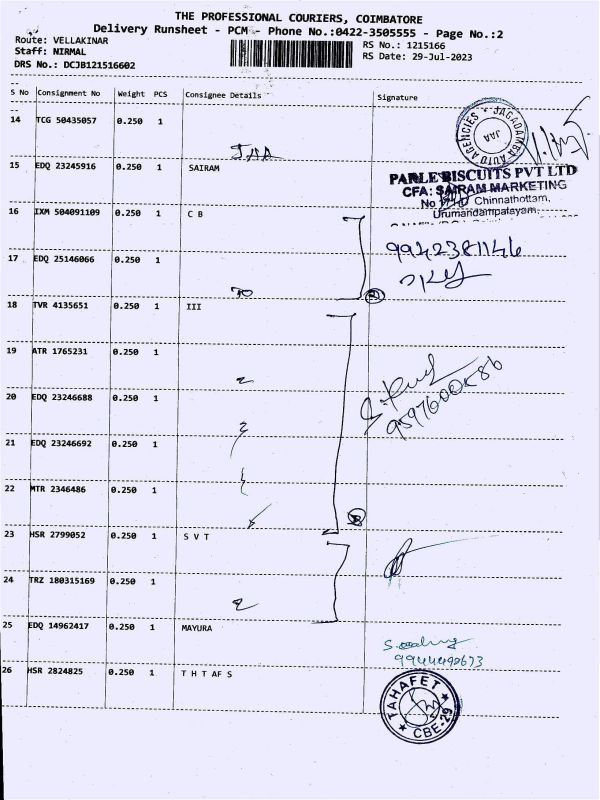 THE PROFESSIONAL COURIERS, COIMBATORE
Delivery Runsheet - PCM - Phone No.:0422-3505555 - Page No.:2
Route: VELLAKINAR
RS No.: 1215166
Staff: NIRMAL
RS Date: 29-Jul-2023
DRS No.: DCJB121516602
S No Consignment No Weight PCS Consignee Details Signature
14 TCG 50435057 0.250 1
JAA
JAGADAMBA AUTO AGENCIES
JAA
15 EDQ 23245916 0.250 1 SAIRAM
PARLE BISCUITS PVT LTD
CFA: SAIRAM MARKETING
No Chinnathottam,
Urumandampalayam,
16 IXM 504091109 0.250 1 C B
9942381146
17 EDQ 25146066 0.250 1
18 TVR 4135651 0.250 1 III
19 ATR 1765231 0.250 1
20 EDQ 23246688 0.250 1
21 EDQ 23246692 0.250 1
22 MTR 2346486 0.250 1
23 HSR 2799052 0.250 1 S V T
24 TRZ 180315169 0.250 1
25 EDQ 14962417 0.250 1 MAYURA
26 HSR 2824825 0.250 1 T H T AF S
TAHAFET
CBE-29